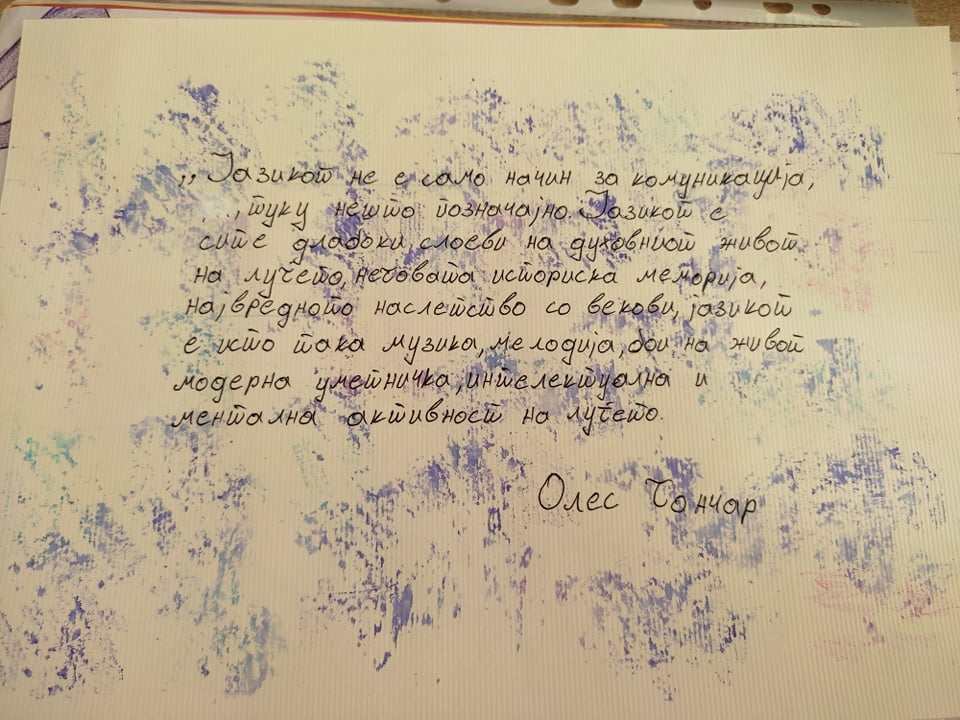 ,,Јазикот не е само начин за комуникација,
...,туку нешто позначајно. Јазикот е
сите длабоки слоеви на духовниот живот
на луѓето, неговата историска меморија,
највредното наследство со векови, јазикот
е исто така музика, мелодија, бои на живот
модерна уметничка, интелектуална и
ментална активност на луѓето.
Олес Гончар